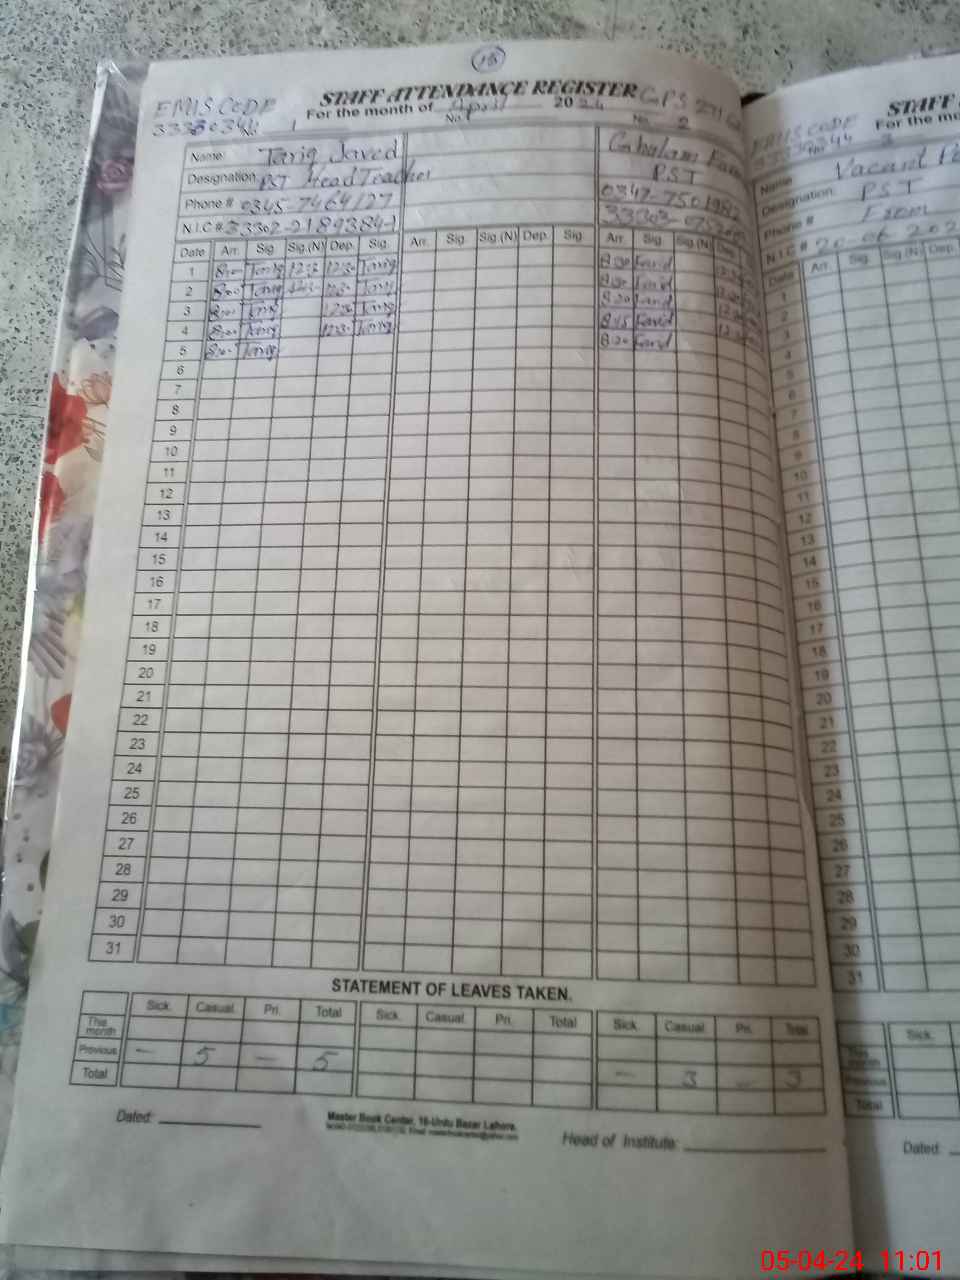 18
STAFF ATTENDANCE REGISTER GPS
EMIS CODE For the month of April 2024
33330344 No. 1 No. No. 2
Name: Tariq Javed Ghulam
Designation: PST Head Teacher PST
Phone # 0345-7464127 0347-7501982
N.I.C # 33302-2189384-1 33303-
Date Arr. Sig. Sig.(N) Dep. Sig. Arr. Sig. Sig.(N) Dep. Sig. Arr. Sig. Sig.(N) Dep.
1 8:00 Tariq 12:30 12:30 Tariq 8:30 Farid
2 8:00 Tariq 12:30 Tariq 8:30 Farid
3 8:00 Tariq 12:30 Tariq 8:20 Farid
4 8:00 Tariq 12:30 Tariq 8:15 Farid
5 8:00 Tariq 8:20 Farid
6
7
8
9
10
11
12
13
14
15
16
17
18
19
20
21
22
23
24
25
26
27
28
29
30
31
STATEMENT OF LEAVES TAKEN.
Sick. Casual. Pri. Total Sick. Casual. Pri. Total Sick. Casual. Pri. Total
This month
Previous — 5 — 5 — 3 — 3
Total
Dated: Master Book Center, 16-Urdu Bazar Lahore.
Head of Institute:
STAFF
EMIS CODE For the mo
No. 3
Name Vacant
Designation: PST
Phone # From
N.I.C # 20-06-202
Date Arr. Sig. Sig.(N) Dep.
1
2
3
4
5
6
7
8
9
10
11
12
13
14
15
16
17
18
19
20
21
22
23
24
25
26
27
28
29
30
31
Sick.
This month
Previous
Total
Dated:
05-04-24 11:01